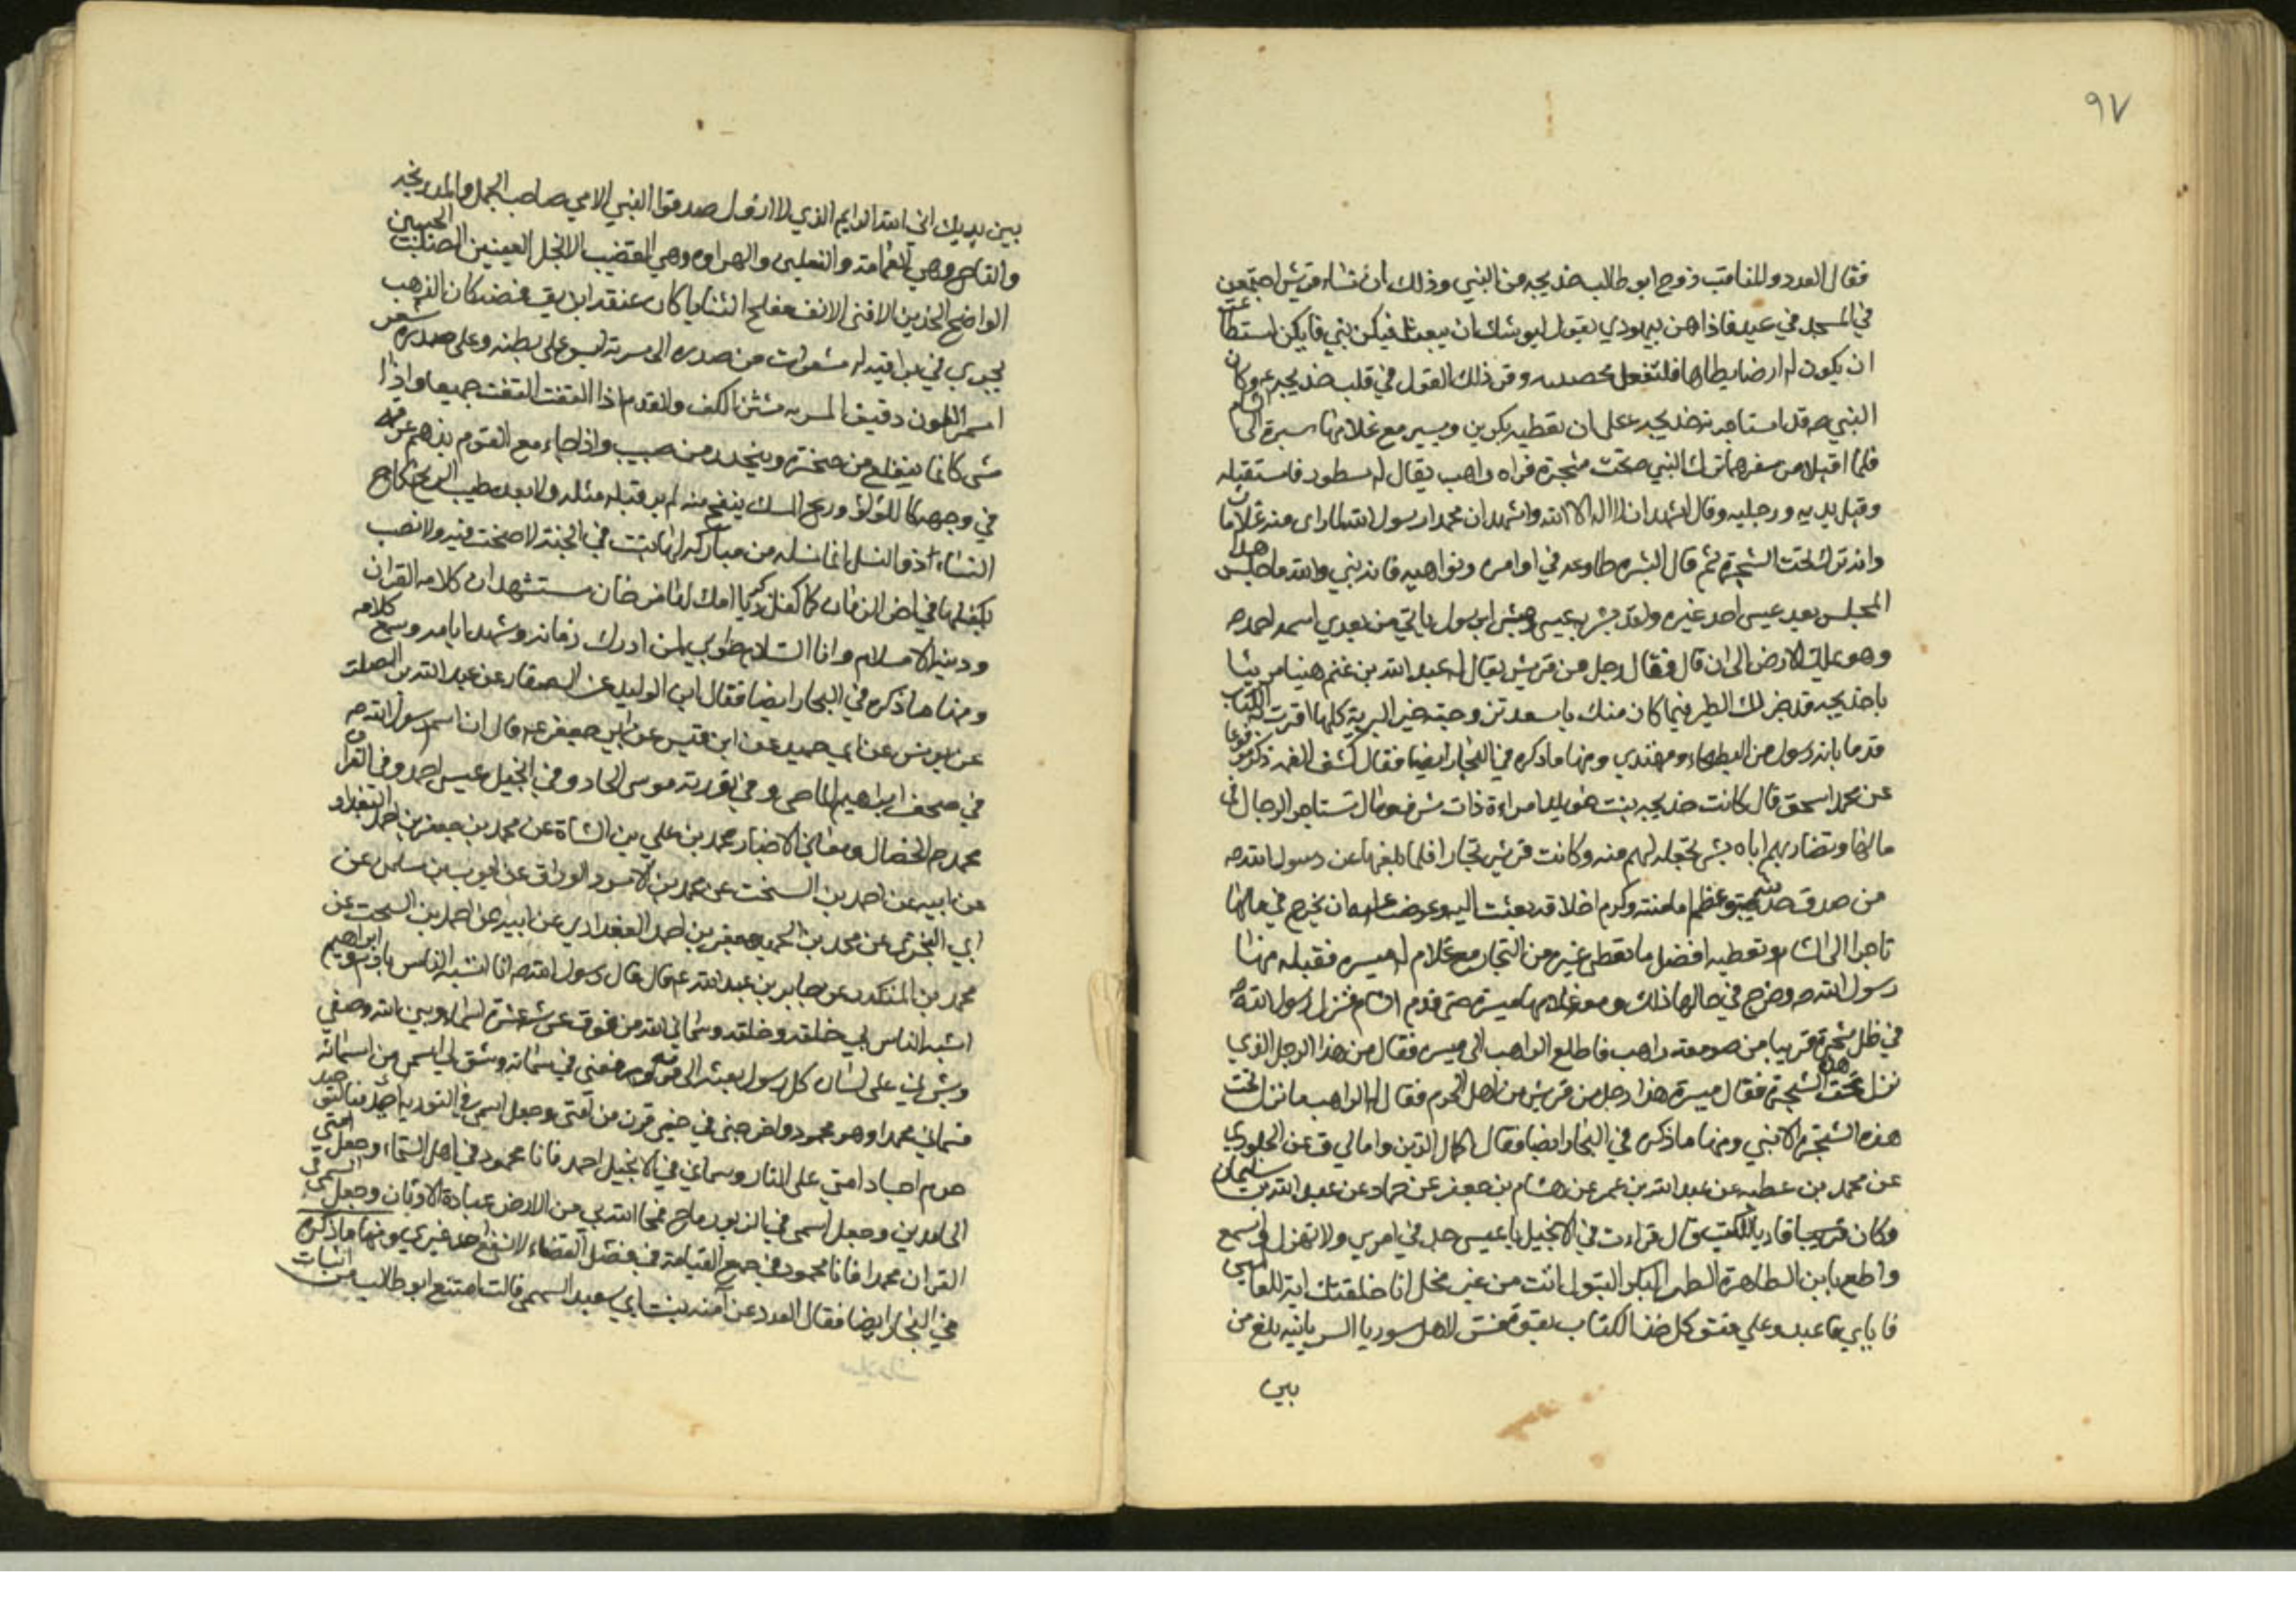 ٩٧
فقال العدد و المناقب زوج ابو طالب خديجه من النبي وذلك ان نساء قريش اجتمعن
في المسجد في عيد فاذا هن بيهودي يقول ليوشك ان يبعث فيكن نبي فايكن استطاعت
ان يكون له ارضا يطاها فلتفعل فحصبنه وقر ذلك القول في قلب خديجه ع وكان
النبي ص قد استاجرته خديجه ع على ان تعطيه بكرين ويسير مع غلامها ميسرة الى الشام
فلما اقبلا من سفرهما نزل النبي ص تحت شجرة فراه راهب يقال له نسطور فاستقبله
وقبل يديه ورجليه وقال اشهد ان لا اله الا الله واشهد ان محمدا رسول الله لما راى منه علامات
وانه نزل تحت الشجرة ثم قال لميسره طاوعه في اوامره ونواهيه فانه نبي والله ما جلس هذا
المجلس بعد عيسى احد غيره ولقد بشر به عيسى ومبشرا برسول ياتي من بعدي اسمه احمد ص
وهو يملك الارض الى ان قال فقال رجل من قريش يقال له عبد الله بن غنم هنيئا مريئا
يا خديجه قد جرت لك الطير فيما كان منك باسعد تزوجته خير البرية كلها اقرت به الكتاب
قدما بانه رسول من البطحاء ومهتدي ومنها ما ذكره في البحار ايضا فقال كشف الغمه ذكر مرفوعا
عن محمد اسحق قال كانت خديجه بنت خويلد امراءة ذات شرف ومال تستاجر الرجال في
مالها وتضاربهم اياه بشي تجعله لهم منه وكانت قريش تجارا فلما بلغها عن رسول الله ص
من صدق حديثه وعظم امانته وكرم اخلاقه بعثت اليه وعرضت عليه ان يخرج في مالها
تاجرا الى الشام وتعطيه افضل ما تعطي غيره من التجار مع غلام لها ميسره فقبله منها
رسول الله ص وخرج في مالها ذلك ومعه غلامها ميسرة حتى قدم الشام فنزل رسول الله ص
في ظل شجرة قريبا من صومعة راهب فاطلع الراهب الى ميسره فقال من هذا الرجل الذي
نزل تحت هذه الشجرة فقال ميسرة هذا رجل من قريش من اهل الحرم فقال له الراهب ما نزل تحت
هذه الشجرة الا نبي ومنها ما ذكره في البحار ايضا فقال اكمال الدين وامالي ق عن الجلودي
عن محمد بن عطيه عن عبد الله بن عمر عن هشام بن جعفر عن حماد عن عبد الله بن سليمان
وكان قاريا للكتب قال قراءت في الانجيل يا عيسى جد في امري ولا تهزل واسمع
واطع يابن الطاهرة الطهر البكر البتول انت من غير فحل انا خلقتك اية للعالمين
فاياي فاعبد وعلي فتوكل خذ الكتاب بقوة فسر لاهل سوريا السريانيه بلغ من
بين
بين يديك اني انا الله الدايم الذي لا ازول صدقوا النبي الامي صاحب الجمل والمدرعه
والتاج وهي العمامة والنعلين والهراوه وهي القضيب الانجل العينين الصلت الجبين
الواضح الخدين الاقنى الانف مفلج الثنايا كان عنقه ابريق فضه كان الذهب
يجري في تراقيه له شعرات من صدره الى سرته ليس على بطنه وعلى صدره شعر
اسمر اللون دقيق المسربه شثن الكف والقدم اذا التفت التفت جميعا واذا
مشى كانما يتقلع من صخره وينحدر من صبب واذا جاء مع القوم بذهم عرقه
في وجهه كاللولؤ وريح المسك ينفح منه لم ير قبله مثله ولا بعده طيب الريح نكاح
النساء ذو النسل انما نسله من مباركه لها بيت في الجنة لا صخب فيه ولا نصب
يكفلها في اخر الزمان كما كفل زكريا امك لها فرخان مستشهدان كلامه القران
ودينه الاسلام وانا السلام طوبى لمن ادرك زمانه وشهد ايامه وسمع كلامه
ومنها ما ذكره في البحار ايضا فقال ابن الوليد عن الصفار عن عبد الله بن الصلت
عن يونس عن ابي حميد عن ابن قيس عن ابي جعفر ع قال ان اسم رسول الله ص
في صحف ابراهيم الماحي وفي توريه موسى الحاد وفي انجيل عيسى احمد وفي القران
محمد ص الخصال ومعاني الاخبار محمد بن علي بن الشاة عن محمد بن جعفر بن احمد البغدادي
عن ابيه عن احمد بن السخت عن محمد بن الاسود الوراق عن ايوب بن سليمان عن
ابي البختري عن محمد بن الحميد جعفر بن احمد البغدادي عن ابيه عن احمد بن السخت عن
محمد بن المنكدر عن جابر بن عبد الله ع قال قال رسول الله ص انا اشبه الناس بادم وابراهيم
اشبه الناس بي خلقه وخلقه وسماني الله من فوق عرشه عشرة اسماء وبين الله وصفي
وبشر بي على لسان كل رسول بعثه الى قومه ورفعني في سمائه وشق لي اسمي من اسمائه
فسماني محمدا وهو محمود واخرجني في خير قرن من امتي وجعل اسمي في التوريه احيد فبالتوحيد
حرم اجساد امتي على النار وسماني في الانجيل احمد فانا محمود في اهل السماء وجعل امتي
الحامدين وجعل اسمي في الزبور ماح محا الله بي من الارض عبادة الاوثان وجعل اسمي في
القران محمدا فانا محمود في جميع القيامة في فصل القضاء لا يشفع احد غيري ومنها ما ذكره
في البحار ايضا فقال العدد عن آمنه بنت ابي سعيد السهمي قالت امتنع ابو طالب من اتيان